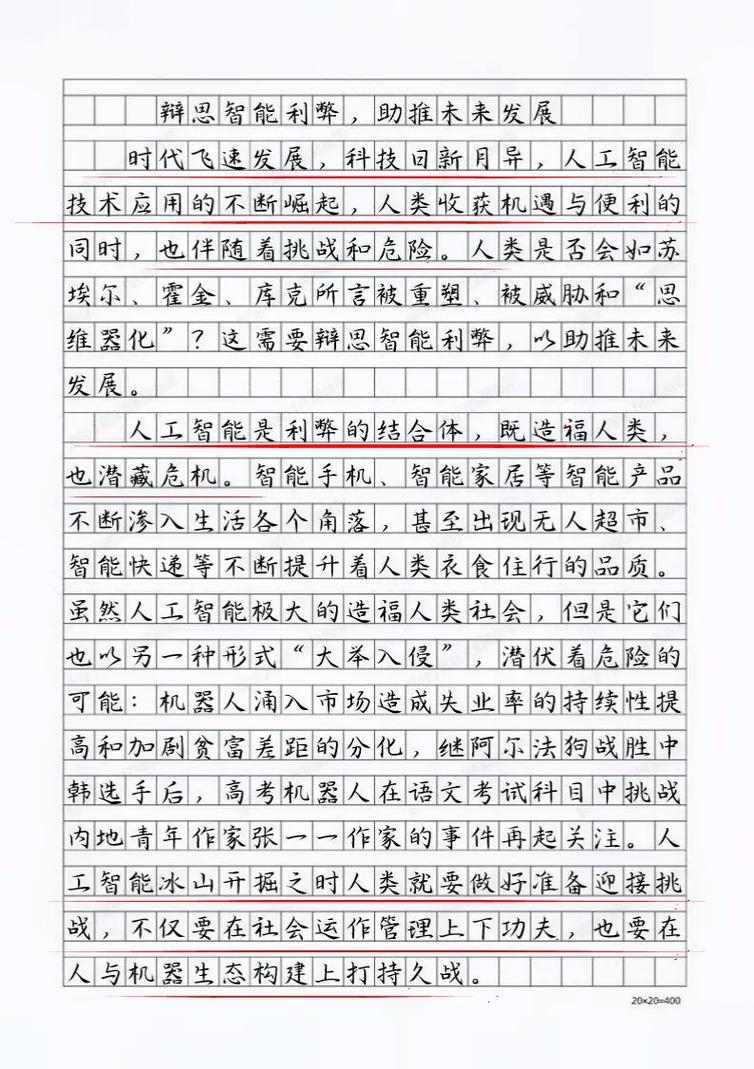 辩思智能利弊，助推未来发展
时代飞速发展，科技日新月异，人工智能
技术应用的不断崛起，人类收获机遇与便利的
同时，也伴随着挑战和危险。人类是否会如苏
埃尔、霍金、库克所言被重塑、被威胁和“思
维器化”？这需要辩思智能利弊，以助推未来
发展。
人工智能是利弊的结合体，既造福人类，
也潜藏危机。智能手机、智能家居等智能产品
不断渗入生活各个角落，甚至出现无人超市、
智能快递等不断提升着人类衣食住行的品质。
虽然人工智能极大的造福人类社会，但是它们
也以另一种形式“大举入侵”，潜伏着危险的
可能：机器人涌入市场造成失业率的持续性提
高和加剧贫富差距的分化，继阿尔法狗战胜中
韩选手后，高考机器人在语文考试科目中挑战
内地青年作家张一一作家的事件再起关注。人
工智能冰山开掘之时人类就要做好准备迎接挑
战，不仅要在社会运作管理上下功夫，也要在
人与机器生态构建上打持久战。
20×20=400